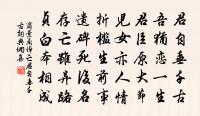 君自垂千古
吾猶戀一生
君臣原大節
兒女亦人情
折檻生前事
遺碑死後名
存亡雖異路
貞白本相成
商景蘭悼亡君自垂千